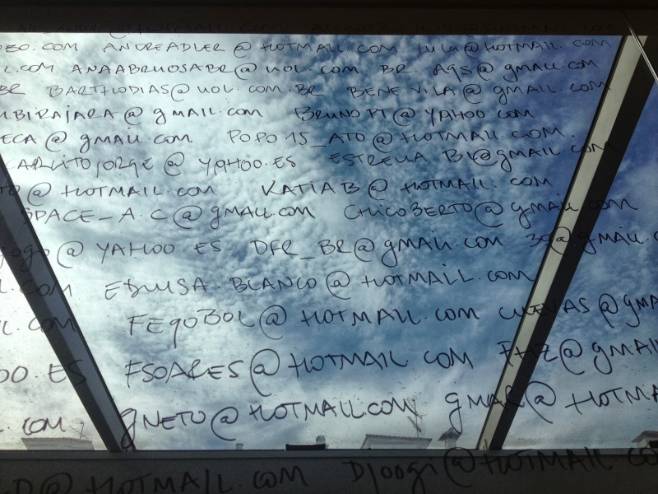 DEO.COM ANDREADLER@HOTMAIL.COM LULU@HOTMAIL.COM
L.COM ANAABRUOSABR@UOL.COM.BR AGS@GMAIL.COM
BR BARTHDIAS@UOL.COM.BR BENEVILA@GMAIL.COM
UBIRAJARA@GMAIL.COM BRUNOPI@YAHOO.COM
ECA@GMAIL.COM POPO15_ATO@HOTMAIL.COM.
ARLITOJORGE@YAHOO.ES ESTRELLA.BV@GMAIL.COM
TO@HOTMAIL.COM KATIAB@HOTMAIL.COM
SPACE_A.C@GMAIL.COM CHICOBERTO@GMAIL.COM
JOGO@YAHOO.ES DFR_BR@GMAIL.COM 30@GMAIL.CO
L.COM EDILISA.BLANCO@HOTMAIL.COM
L.COM FEGOBOL@HOTMAIL.COM CUEVAS@GMA
OO.ES FSOARES@HOTMAIL.COM @GMAIL
.COM GNETO@HOTMAIL.COM GMAR@HOTMA
D@HOTMAIL.COM DJOOGI@HOTMAIL.CO